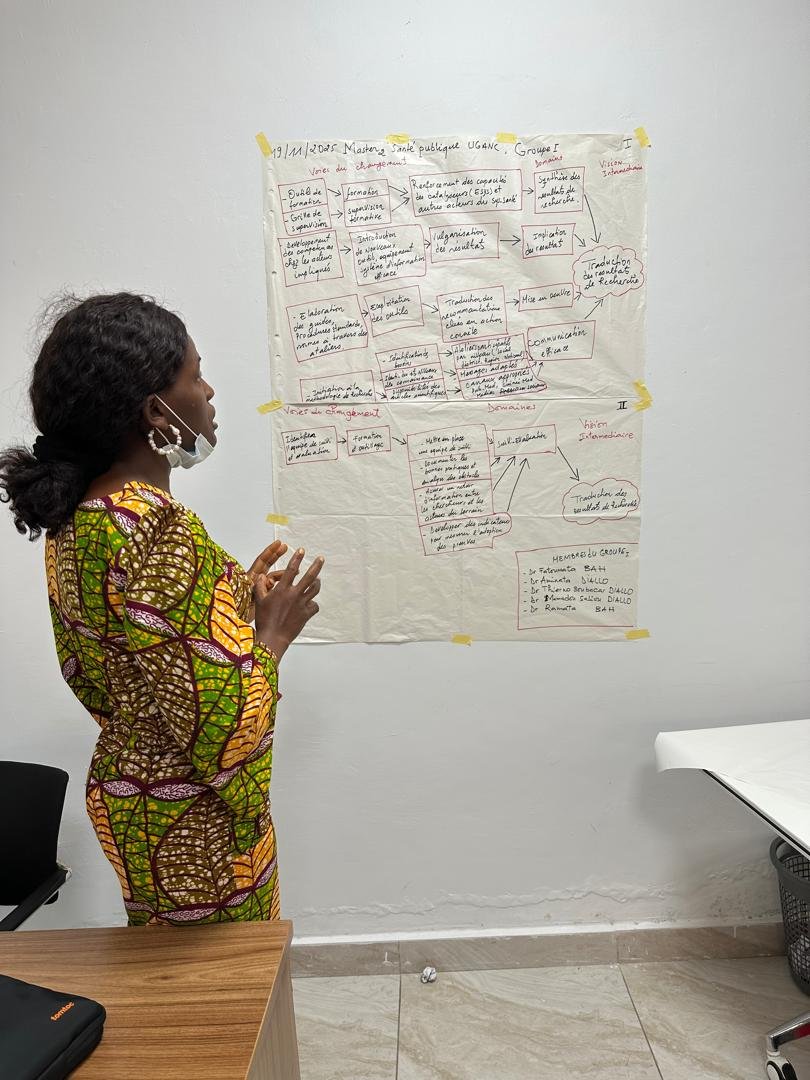 19/11/2025 Master 2 Santé publique UGANC. Groupe I
I
Voies du changement
Domaine
Vision
Intermédiaire
- Outils de
formation
- Grille de
supervision
formation
supervision
formative
Renforcement des capacités
des catalyseurs (ESJS) et
autres acteurs du sys. santé
Synthèse des
résultats de
recherche.
Développement
des compétences
chez les acteurs
impliqués
Introduction
de nouveaux
outils, equipement
système d'information
efficace
Vulgarisation
des résultats
Implication
du resultat
Traduction
des resultats
de Recherche
- Elaboration
des guides,
Procédures standards,
normes à travers des
ateliers.
Exploitation
des outils
Traduction des
recommandations
clues en action
concrete
Mise en oeuvre
- Initiation à la
méthodologie de recherche
- Identification de
besoins
des connaissance
Disponibilités des
articles scientifiques
Messages adaptés
canaux appropriés
Communication
efficace
Voies du changement
Domaines
II
Vision
Intermédiaire
Identifier
l'equipe de suivi
et evaluation
Formation
et outillage
- Mettre en place
une equipe de suivi
- Documenter les
bonnes pratiques et
analyse des obstacles
- Assurer un retour
d'information entre
les chercheurs et les
acteurs du terrain
- Développer des indicateurs
pour mesurer l'adoption
des preuves
Suivi-Evaluation
Traduction des
resultats de Recherche
MEMBRES DU GROUPE I
- Dr Fatoumata BAH
- Dr Aminata DIALLO
- Dr Thierno Boubacar DIALLO
- Dr Mamadou Saliou DIALLO
- Dr Ramata BAH
tomtoc